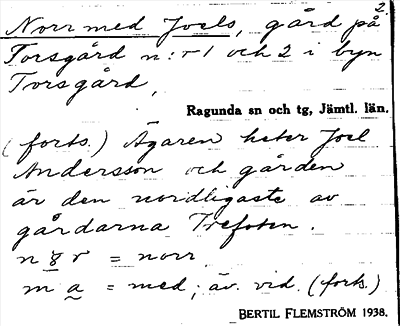 2.
Norr med Joels, gård på
Torsgård n:r 1 och 2 i byn
Torsgård,
Ragunda sn och tg, Jämtl. län.
(forts.) Ägaren heter Joel
Andersson och gården
är den nordligaste av
gårdarna Trefoten.
= norr
m a = med; äv. vid. (forts.)
BERTIL FLEMSTRÖM 1938.